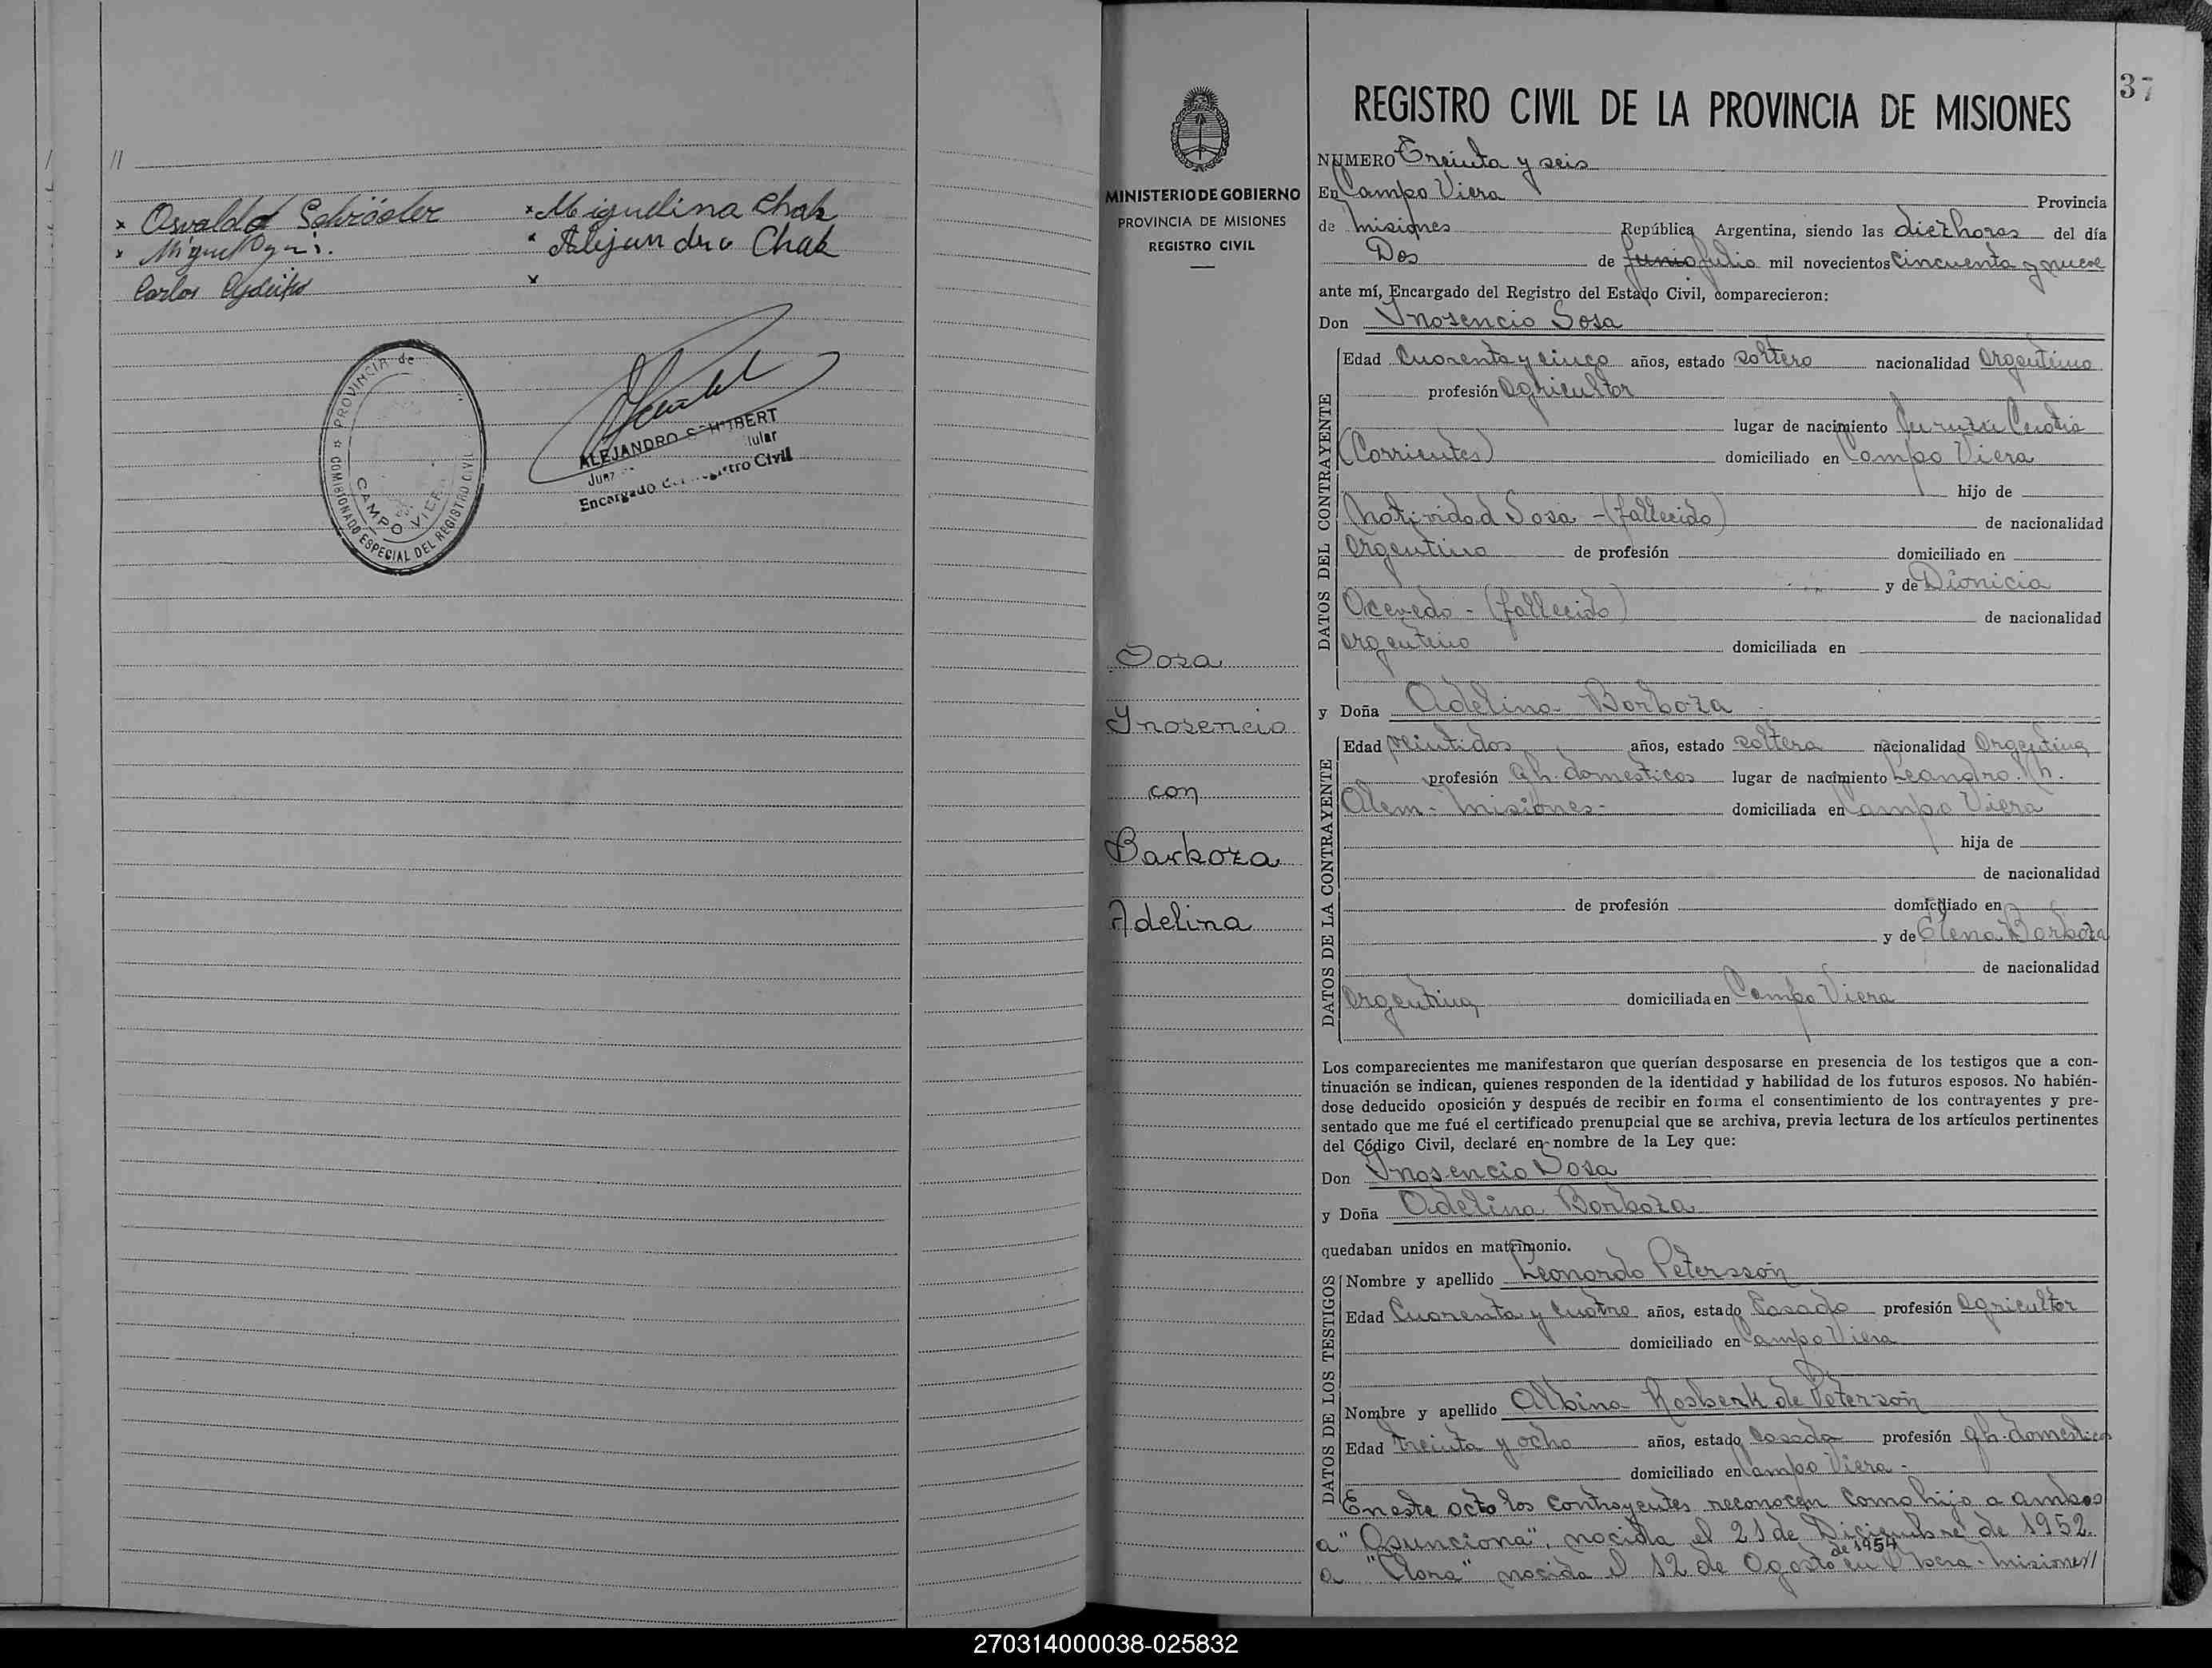 //
x Osvaldo Schröder
x Miguelina Chak
x Miguel
x Alejandro Chak
Carlos
x
PROVINCIA de
CAMPO VIERA
COMISIONADO ESPECIAL DEL REGISTRO CIVIL
ALEJANDRO SCHUBERT
Juez Titular
Encargado del Registro Civil
37
MINISTERIO DE GOBIERNO
PROVINCIA DE MISIONES
REGISTRO CIVIL
Sosa
Ynosencio
con
Barboza
Adelina
REGISTRO CIVIL DE LA PROVINCIA DE MISIONES
NUMERO Treinta y seis
En Campo Viera Provincia
de Misiones República Argentina, siendo las diez horas del día
Dos de Junio Julio mil novecientos cincuenta y nueve
ante mí, Encargado del Registro del Estado Civil, comparecieron:
Don Ynosencio Sosa
DATOS DEL CONTRAYENTE
Edad Cuarenta y cinco años, estado soltero nacionalidad Argentino
profesión Agricultor
lugar de nacimiento Curuzú Cuatiá
(Corrientes) domiciliado en Campo Viera
hijo de
Natividad Sosa - (fallecido) de nacionalidad
Argentino de profesión domiciliado en
y de Dionicia
Acevedo - (fallecido) de nacionalidad
argentino domiciliada en
y Doña Adelina Barboza
DATOS DE LA CONTRAYENTE
Edad Veintidos años, estado soltera nacionalidad Argentina
profesión qh. domesticos lugar de nacimiento Leandro N.
Alem - Misiones - domiciliada en Campo Viera
hija de
de nacionalidad
de profesión domiciliado en
y de Elena Barboza
de nacionalidad
Argentina domiciliada en Campo Viera
Los comparecientes me manifestaron que querían desposarse en presencia de los testigos que a con-
tinuación se indican, quienes responden de la identidad y habilidad de los futuros esposos. No habién-
dose deducido oposición y después de recibir en forma el consentimiento de los contrayentes y pre-
sentado que me fué el certificado prenupcial que se archiva, previa lectura de los artículos pertinentes
del Código Civil, declaré en nombre de la Ley que:
Don Ynosencio Sosa
y Doña Adelina Barboza
quedaban unidos en matrimonio.
DATOS DE LOS TESTIGOS
Nombre y apellido Leonardo Petersson
Edad Cuarenta y cuatro años, estado Casado profesión Agricultor
domiciliado en Campo Viera
Nombre y apellido Albina Rosberk de Peterson
Edad Treinta y ocho años, estado casada profesión qh. domesticos
domiciliado en Campo Viera -
En este acto los contrayentes reconocen como hijo a ambos
a "Asunciona", nacida el 21 de Diciembre de 1952.
de 1954
a "Clara" nacida el 12 de Agosto en Misiones//
270314000038-025832